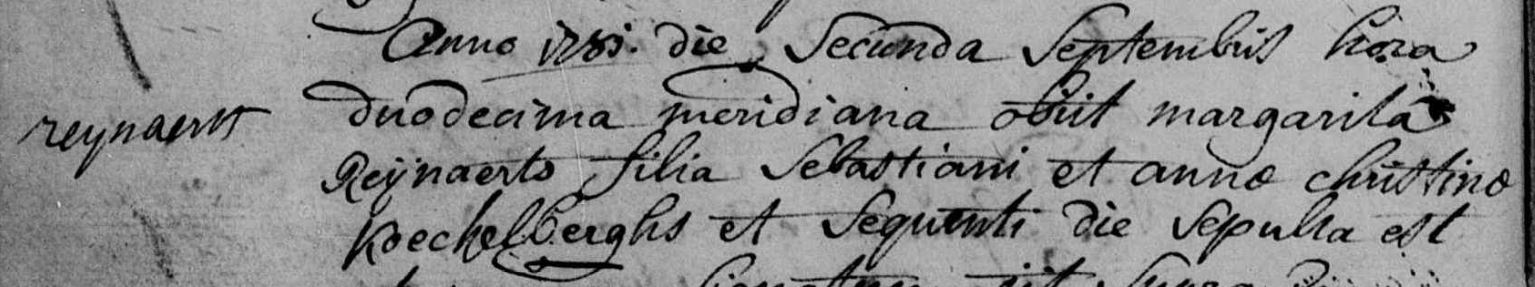 Anno 1781. die Secunda Septembris hora
reynaerts
duodecima meridiana obiit margarita
Reÿnaerts filia Sebastiani et annæ christinæ
Koeckelberghs et Sequenti die Sepulta est
ut Supra